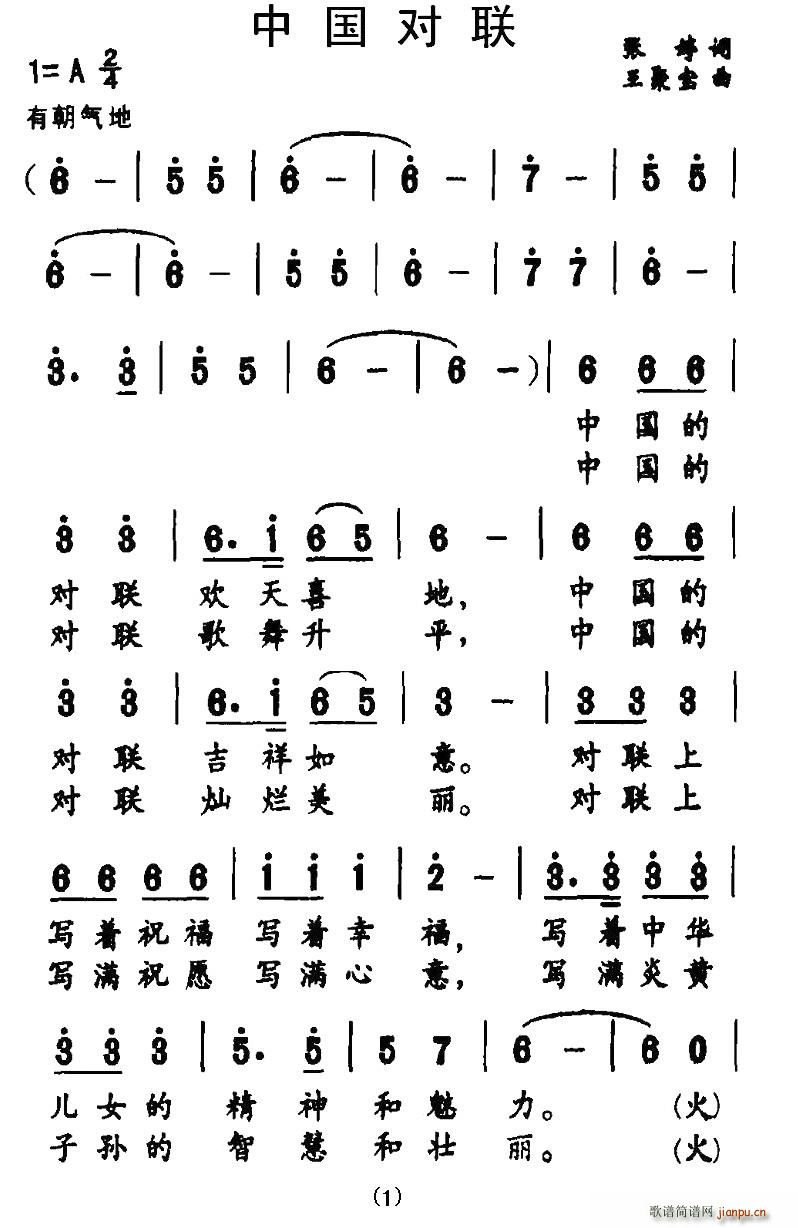 中国对联
张婷词
1=A 2/4
王聚宝曲
有朝气地
(6̇ - | 5̇ 5̇ | 6̇ - | 6̇ - | 7̇ - | 5̇ 5̇ |
6̇ - | 6̇ - | 5̇ 5̇ | 6̇ - | 7̇ 7̇ | 6̇ - |
3̇. 3̇ | 5̇ 5 | 6 - | 6 - ) | 6 6 6 |
中 国 的
中 国 的
3̇ 3̇ | 6. i 6 5 | 6 - | 6 6 6 |
对 联 欢 天 喜 地, 中 国 的
对 联 歌 舞 升 平, 中 国 的
3̇ 3̇ | 6. i 6 5 | 3 - | 3 3 3 |
对 联 吉 祥 如 意。 对 联 上
对 联 灿 烂 美 丽。 对 联 上
6 6 6 6 | i i i | 2̇ - | 3̇. 3̇ 3̇ 3̇ |
写 着 祝 福 写 着 幸 福, 写 着 中 华
写 满 祝 愿 写 满 心 意, 写 满 炎 黄
3̇ 3̇ 3̇ | 5̇. 5̇ | 5 7 | 6 - | 6 0 |
儿 女 的 精 神 和 魅 力。 (火)
子 孙 的 智 慧 和 壮 丽。 (火)
(1)
歌谱简谱网 jianpu.cn